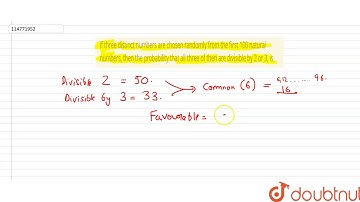 114771952
If three distinct numbers are chosen randomly from the first 100 natural
numbers, then the probability that all three of them are divisible by 2 or 3, is
Divisible 2 = 50.
Divisible by 3 = 33.
Common (6) = 96
16
Favourable =
doubtnut